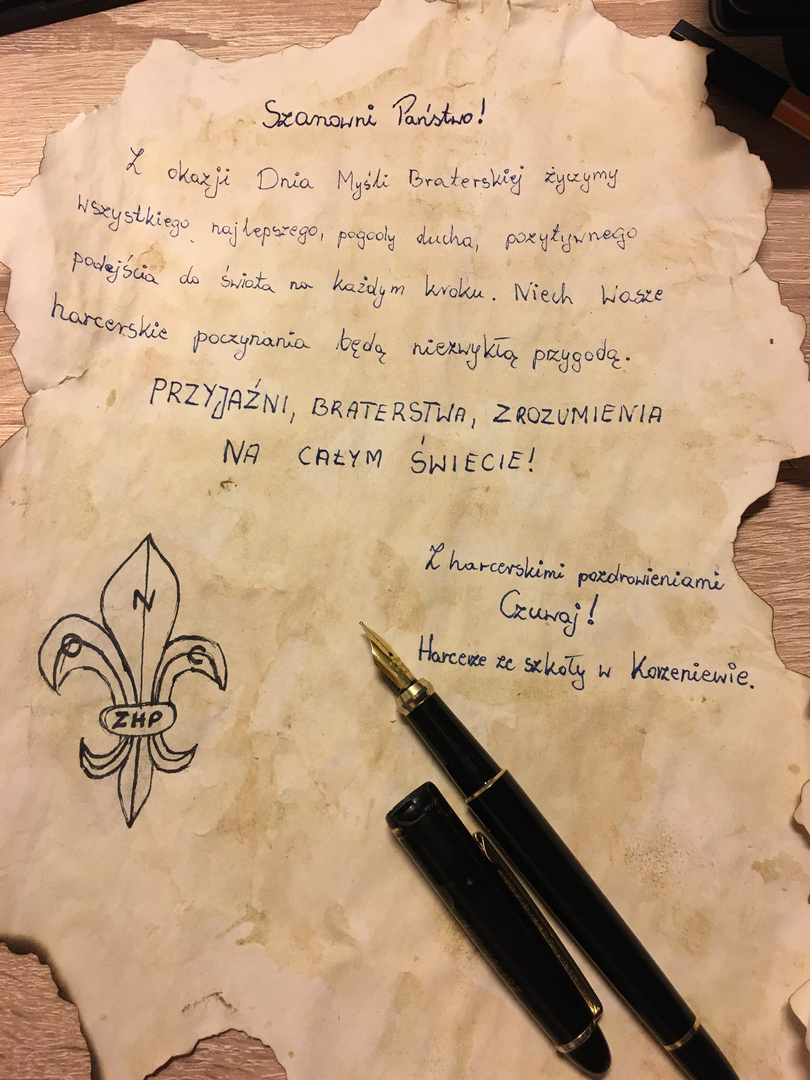 Szanowni Państwo!
Z okazji Dnia Myśli Braterskiej życzymy
wszystkiego najlepszego, pogody ducha, pozytywnego
podejścia do świata na każdym kroku. Niech Wasze
harcerskie poczynania będą niezwykłą przygodą.
PRZYJAŹNI, BRATERSTWA, ZROZUMIENIA
NA CAŁYM ŚWIECIE!
Z harcerskimi pozdrowieniami
Czuwaj!
Harcerze ze szkoły w Korzeniewie.
N
O C
ZHP